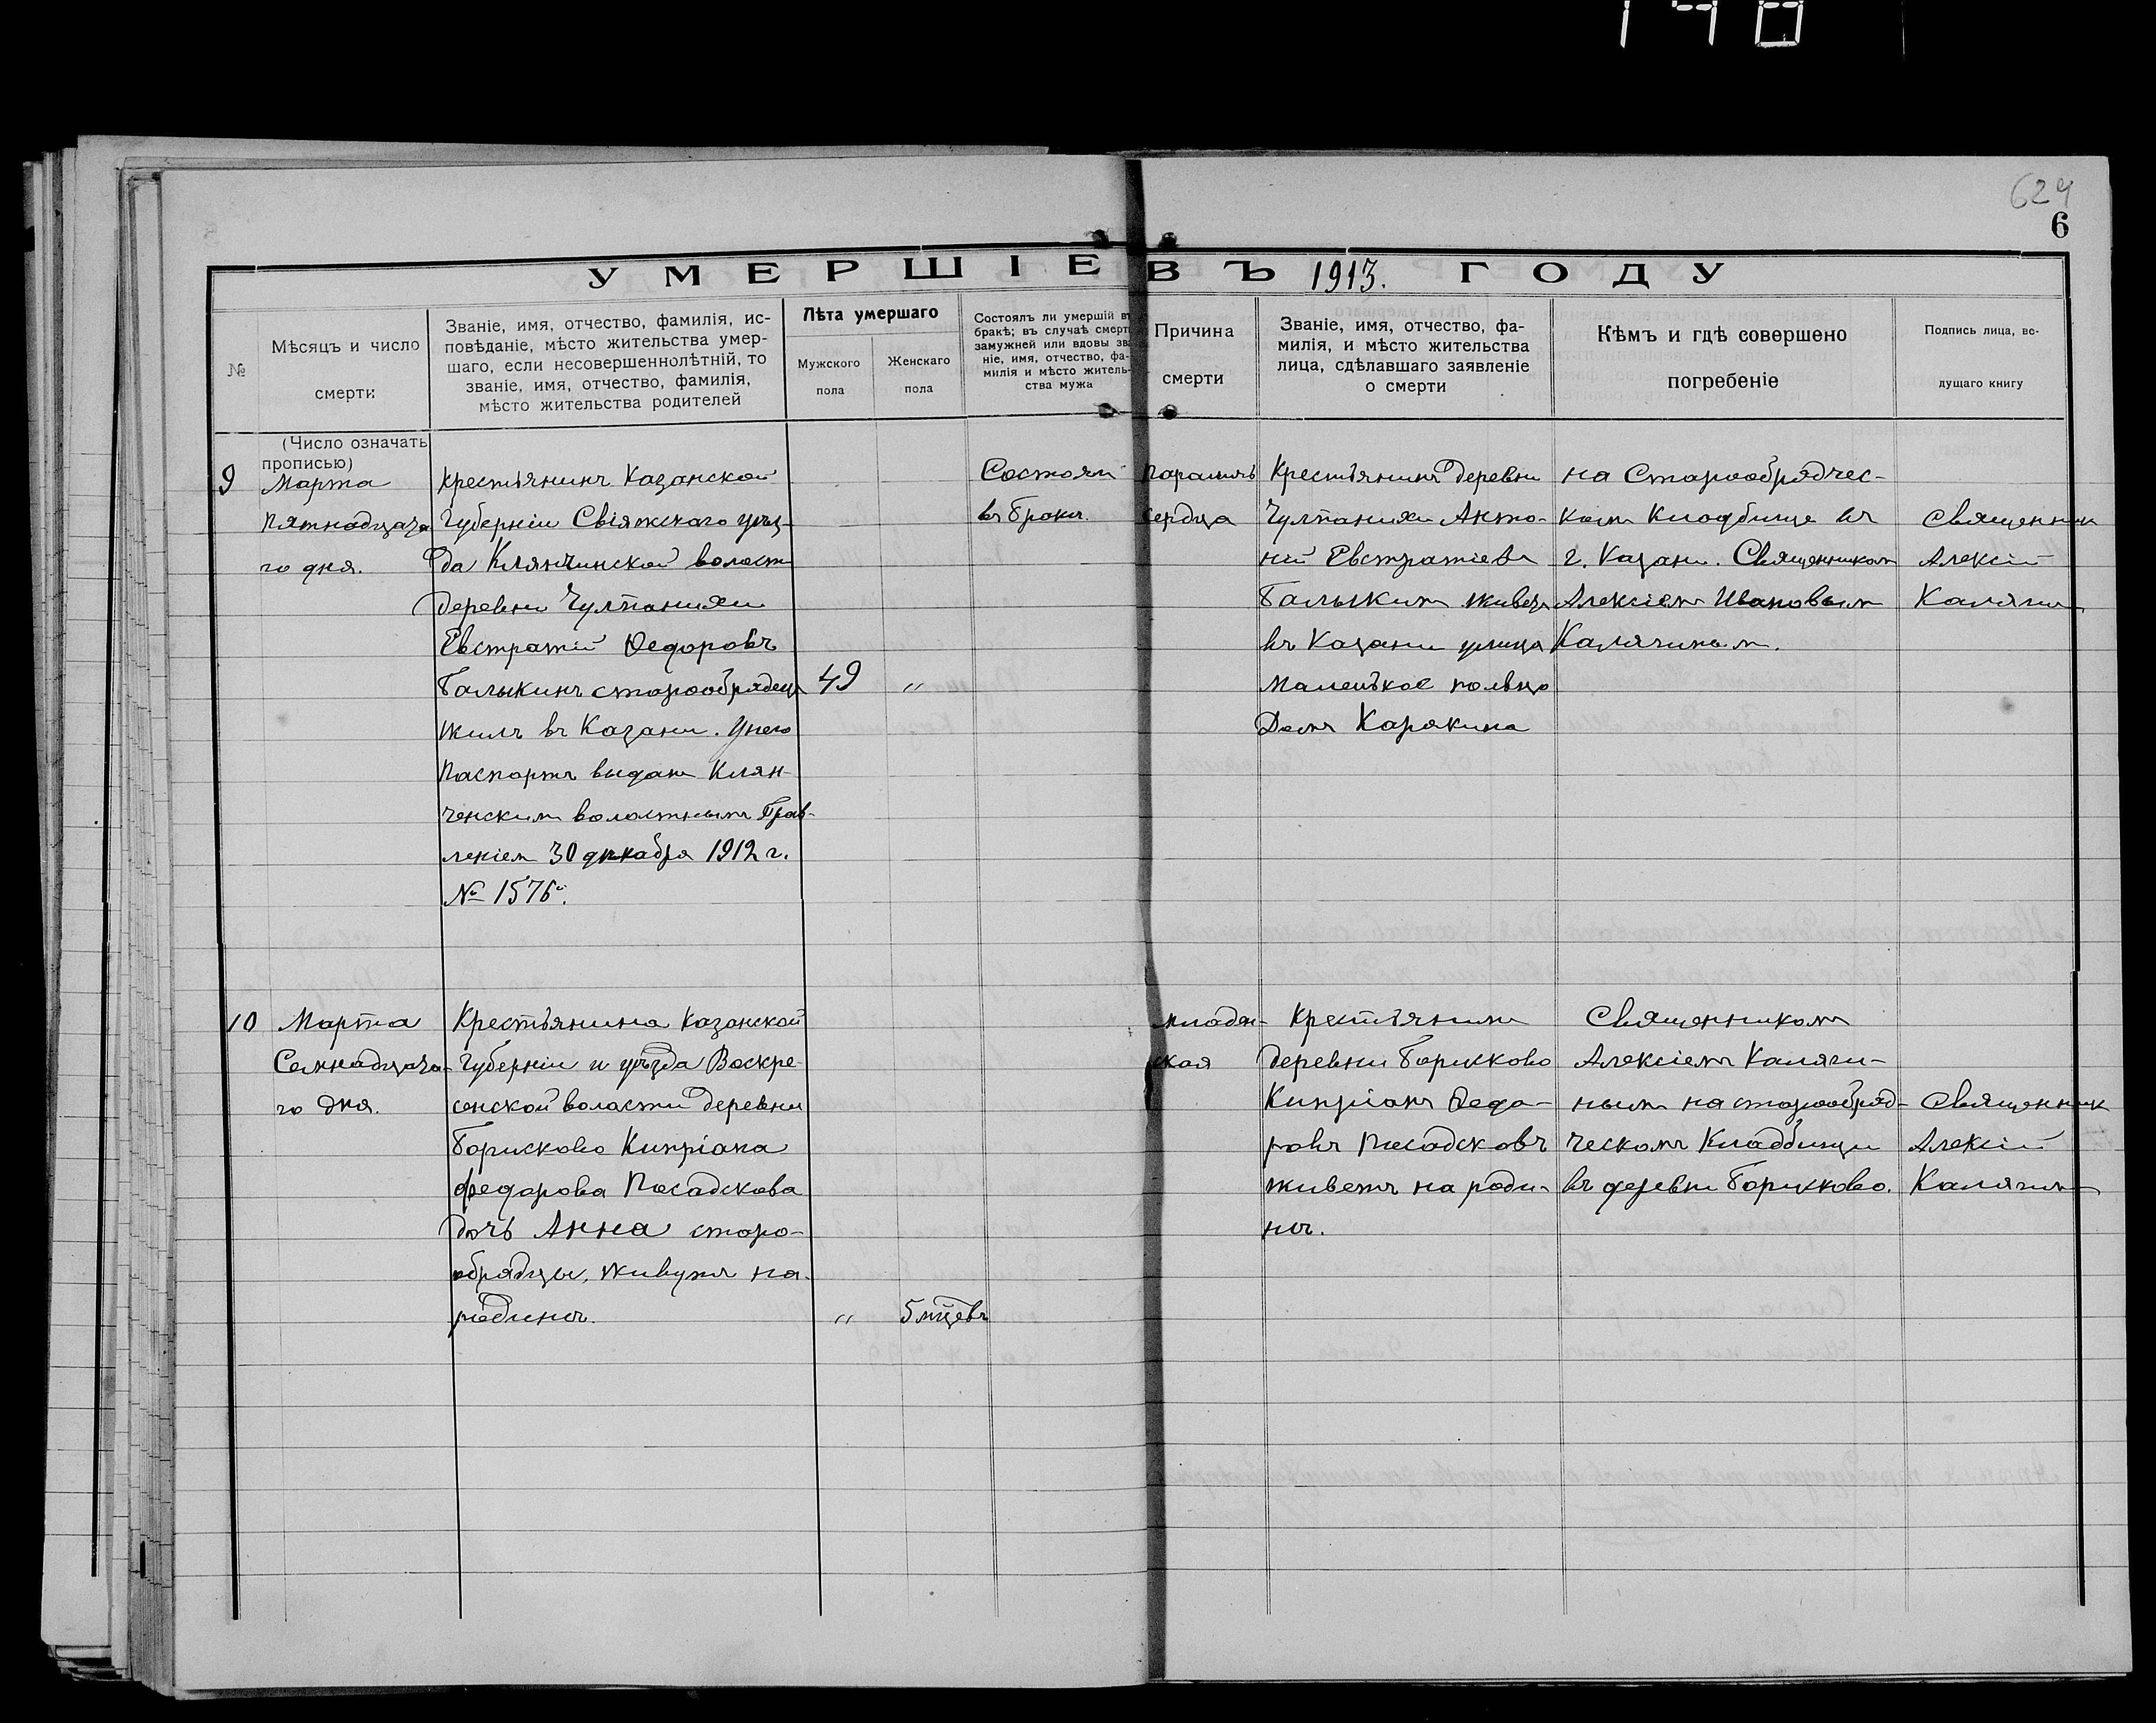 148
624
6
УМЕРШІЕ ВЪ 1913. ГОДУ
№
Мѣсяцъ и число
смерти
Званіе, имя, отчество, фамилія, ис-
повѣданіе, мѣсто жительства умер-
шаго, если несовершеннолѣтній, то
званіе, имя, отчество, фамилія,
мѣсто жительства родителей
Лѣта умершаго
Мужского
пола
Женскаго
пола
Состоялъ ли умершій въ
бракѣ; въ случаѣ смерти
замужней или вдовы зва-
ніе, имя, отчество, фа-
милія и мѣсто житель-
ства мужа
Причина
смерти
Званіе, имя, отчество, фа-
милія, и мѣсто жительства
лица, сдѣлавшаго заявленіе
о смерти
Кѣмъ и гдѣ совершено
погребеніе
Подпись лица, ве-
дущаго книгу
(Число означать
прописью)
9
Марта
Пятнадцата
го дня.
Крестьянинъ Казанской
Губерніи Свіяжскаго уѣз-
да Клянчинской волости
деревни Чулпанихи
Евстратій Ѳедоровъ
Балыкинъ старообрядецъ
жилъ въ Казани. У него
Паспортъ выданъ Клян-
ченскимъ волостнымъ Прав-
леніем 30 декабря 1912 г.
№ 1576.
49
"
Состоял
въ бракѣ.
Параличъ
сердца
Крестьянинъ деревни
Чулпанихи Анто-
ній Евстратіевъ
Балыкинъ живетъ
въ Казани улица
Маленькое польцо
Домъ Карякина
на Старообрядчес-
комъ Кладбище въ
г. Казани. Священником
Алексіемъ Ивановым
Калягиным.
Священник
Алексій
Калягин
10
Марта
Семнадцата-
го дня.
Крестьянина Казанской
Губерніи и уѣзда Воскре-
сенской волости деревни
Борисково Кипріана
Федорова Посадскова
дочь Анна старо-
обрядцы, живутъ на
родинѣ.
"
5 мцевъ
младен-
ская
Крестьянинъ
деревни Борисково
Кипріанъ Ѳедо-
ровъ Посадсковъ
живетъ на роди-
нѣ.
Священникомъ
Алексіемъ Каляги-
нымъ на старообряд-
ческомъ Кладбищи
въ деревни Борисково.
Священник
Алексій
Калягин